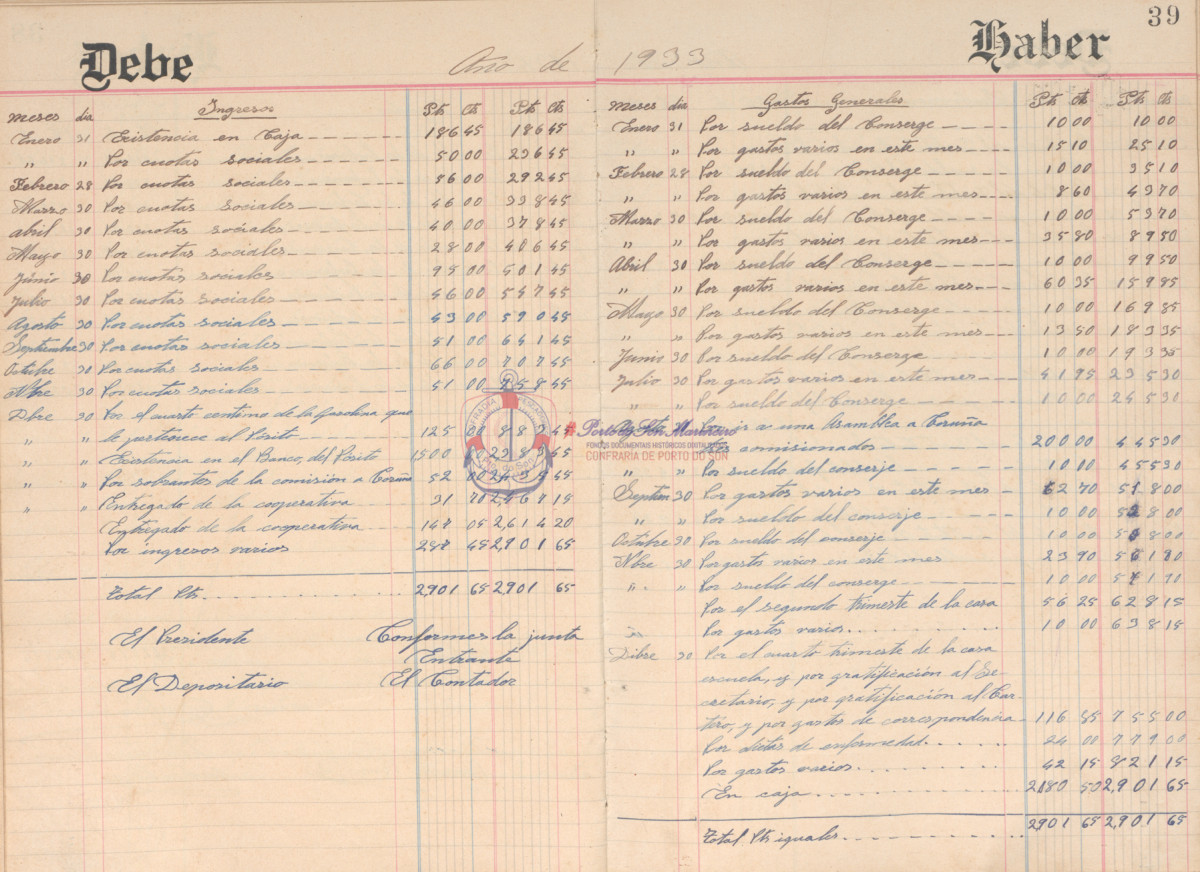 39
Debe Año de 1933 Haber
meses dia Ingresos Pts Cts Pts Cts
Enero 31 Existencia en Caja 186 45 186 45
" " Por cuotas sociales 50 00 236 45
Febrero 28 Por cuotas sociales 56 00 292 45
Marzo 30 Por cuotas sociales 46 00 338 45
abril 30 Por cuotas sociales 40 00 378 45
Mayo 30 Por cuotas sociales 28 00 406 45
Junio 30 Por cuotas sociales 95 00 501 45
Julio 30 Por cuotas sociales 46 00 547 45
Agosto 30 Por cuotas sociales 43 00 590 45
Septiembre 30 Por cuotas sociales 51 00 641 45
Octubre 30 Por cuotas sociales 66 00 707 45
Nbre 30 Por cuotas sociales 51 00 758 45
Dbre 30 Por el cuarto centimo de la gasolina que
" " le pertenece al Pósito 125 00 883 45
" " Existencia en el Banco, del Pósito 1500 00 2383 45
" " Por sobrantes de la comisión a Coruña 52 00
" " Entregado de la cooperativa 31 70 2,467 15
Entregado de la cooperativa 147 05 2,614 20
Por ingresos varios 287 45 2,901 65
Total Pts. 2,901 65 2,901 65
El Presidente Conformes la junta
Entrante
El Depositario El Contador
meses dia Gastos Generales Pts Cts Pts Cts
Enero 31 Por sueldo del Conserge 10 00 10 00
" " Por gastos varios en este mes 15 10 25 10
Febrero 28 Por sueldo del Conserge 10 00 35 10
" " Por gastos varios en este mes 8 60 43 70
Marzo 30 Por sueldo del Conserge 10 00 53 70
" " Por gastos varios en este mes 35 80 89 50
Abril 30 Por sueldo del Conserge 10 00 99 50
" " Por gastos varios en este mes 60 35 159 85
Mayo 30 Por sueldo del Conserge 10 00 169 85
" " Por gastos varios en este mes 13 50 183 35
Junio 30 Por sueldo del Conserge 10 00 193 35
Julio 30 Por gastos varios en este mes 41 95 235 30
" " Por sueldo del Conserge 10 00 245 30
a una Asamblea a Coruña
comisionados 200 00 445 30
" " Por sueldo del conserje 10 00 455 30
Septiem 30 Por gastos varios en este mes 62 70 518 00
" " Por sueldo del conserje 10 00 528 00
Octubre 30 Por sueldo del conserje 10 00 538 00
Nbre 30 Por gastos varios en este mes 23 90 561 90
" " Por sueldo del conserge 10 00 571 90
Por el segundo trimestre de la casa 56 25 628 15
Por gastos varios 10 00 638 15
Dibre 30 Por el cuarto trimeste de la casa
escuela, y por gratificación al Se-
cretario, y por gratificación al Car-
tero, y por gastos de correspondencia 116 85 755 00
Por dietas de enfermedad 24 00 779 00
Por gastos varios 42 15 821 15
En caja 2080 50 2,901 65
Total Pts iguales 2901 65 2,901 65
Porto do Son Mariñeiro
FONDOS DOCUMENTAIS HISTÓRICOS DIGITALIZADOS
CONFRARIA DE PORTO DO SON